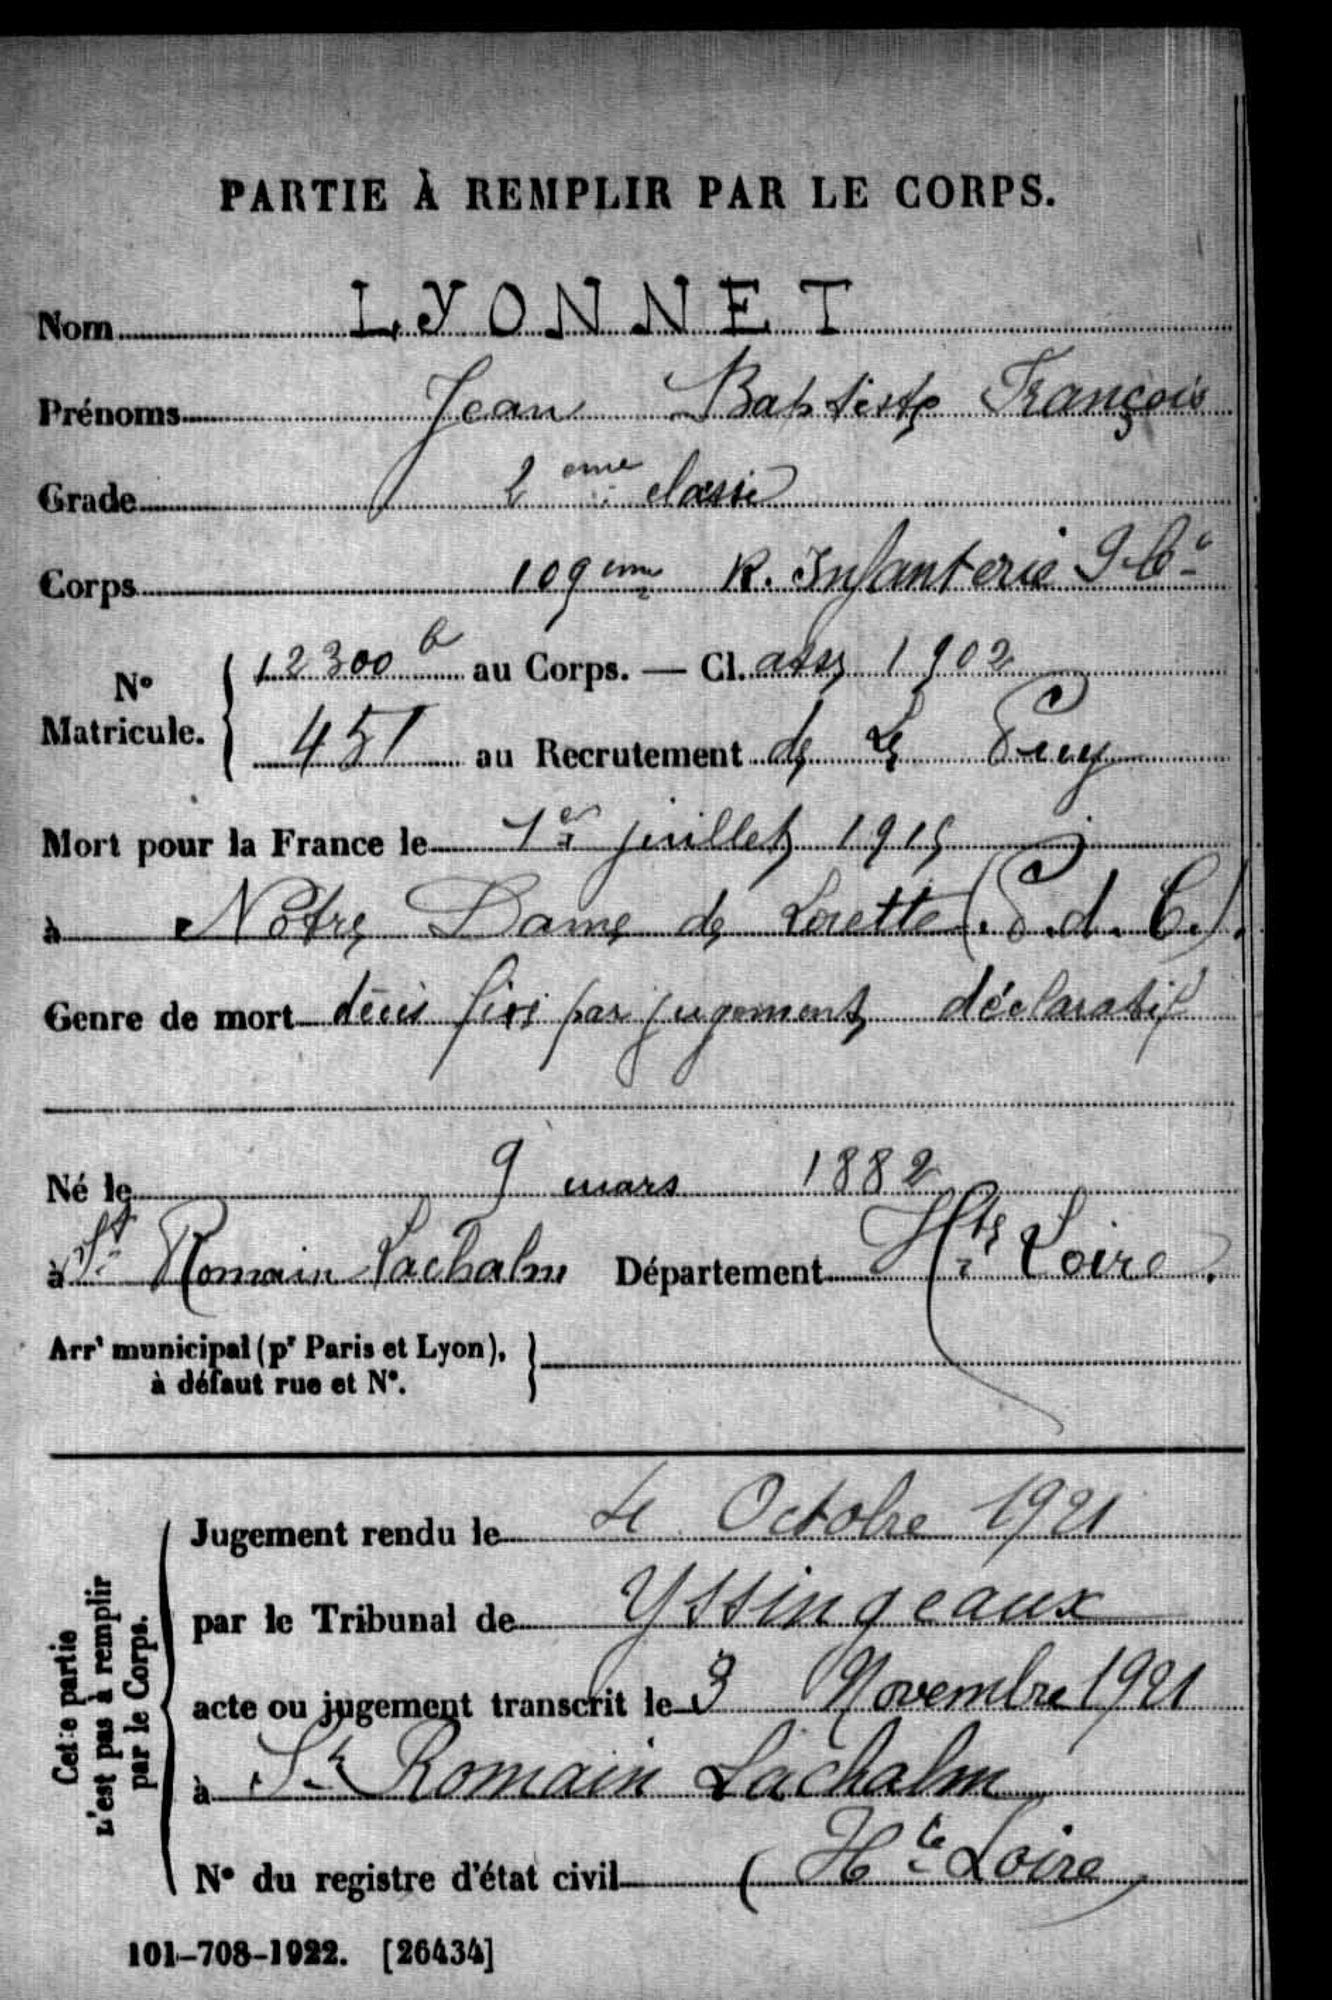 PARTIE À REMPLIR PAR LE CORPS.
Nom LYONNET
Prénoms Jean Baptiste François
Grade 2ème classe
Corps 109ème R. Infanterie 9 Cie
N° Matricule. { 12300 b au Corps. — Cl. asse 1902
451 au Recrutement de Le Puy
Mort pour la France le 1er juillet 1915
à Notre Dame de Lorette (P.d.C.).
Genre de mort décès fixé par jugement déclaratif
Né le 9 mars 1882
à St Romain Lachalm Département Hte Loire.
Arrt municipal (pr Paris et Lyon),
à défaut rue et N°.
Cette partie
n'est pas à remplir
par le Corps.
Jugement rendu le 4 Octobre 1921
par le Tribunal de Yssingeaux
acte ou jugement transcrit le 3 Novembre 1921
à St Romain Lachalm
N° du registre d'état civil (Hte Loire)
101-708-1922. [26434]